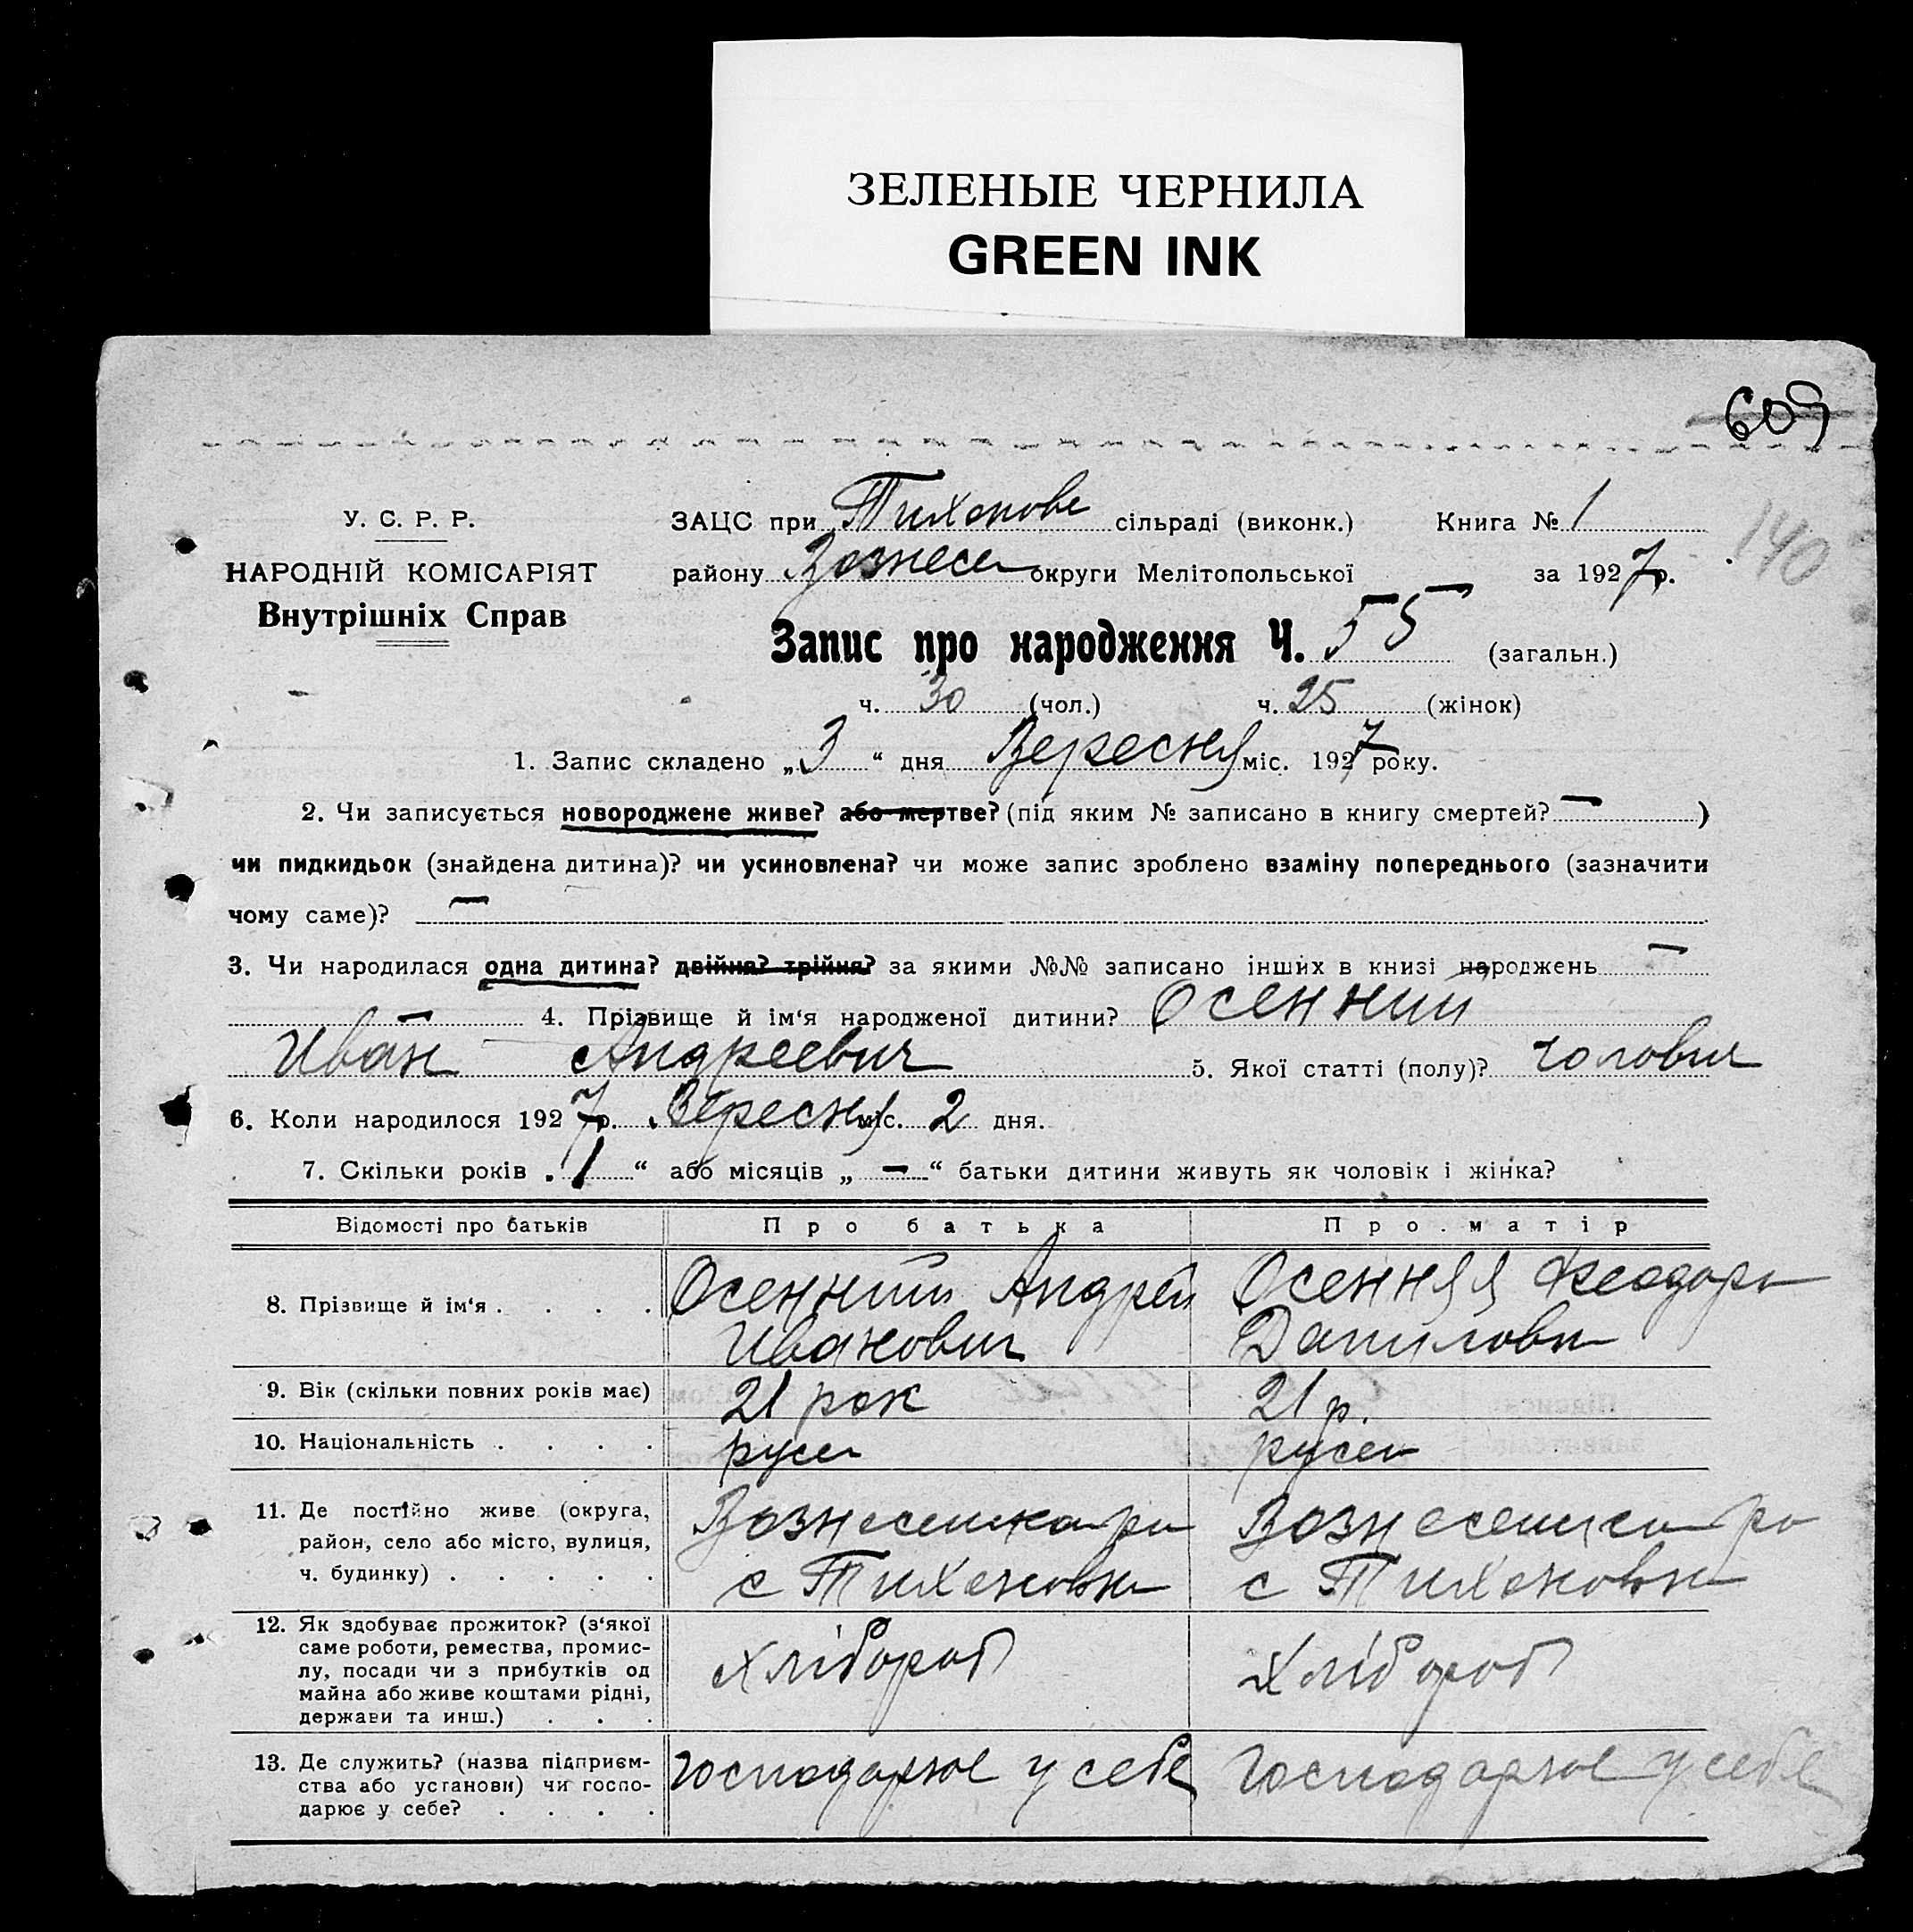 ЗЕЛЕНЫЕ ЧЕРНИЛА
GREEN INK
609
140
У. С. Р. Р.
НАРОДНІЙ КОМІСАРІЯТ
Внутрішніх Справ
ЗАЦС при Тихонове сільраді (виконк.) Книга № 1
району Вознесен округи Мелітопольської за 1927 р.
Запис про народження Ч. 55 (загальн.)
ч. 30 (чол.) ч. 25 (жінок)
1. Запис складено „3“ дня Вересня міс. 1927 року.
2. Чи записується новороджене живе? або мертве? (під яким № записано в книгу смертей? — )
чи пидкидьок (знайдена дитина)? чи усиновлена? чи може запис зроблено взаміну попереднього (зазначити
чому саме)? —
3. Чи народилася одна дитина? двійня? трійня? за якими №№ записано інших в книзі народжень —
— 4. Прізвище й ім‘я народженої дитини? Осенний
Иван Андреевич 5. Якої статті (полу)? чолович
6. Коли народилося 1927 р. Вересня міс. 2 дня.
7. Скільки років „1“ або місяців „—“ батьки дитини живуть як чоловік і жінка?
Відомості про батьків Про батька Про матір
8. Прізвище й ім‘я . . . . Осенний Андрей Осенняя Феодора
Иванович Даниловн
9. Вік (скільки повних років має) 21 рок 21 р.
10. Національність . . . . русск русск
11. Де постійно живе (округа, Вознесенка рн Вознесенка рн
район, село або місто, вулиця,
ч. будинку) . . . . . с Тихоновка с Тихоновка
12. Як здобуває прожиток? (з‘якої
саме роботи, ремества, промис-
лу, посади чи з прибутків од Хлібороб Хлібороб
майна або живе коштами рідні,
держави та инш.) . . .
13. Де служить? (назва підприєм- господарює у себе господарює у себе
ства або установи) чи госпо-
дарює у себе? . . . .